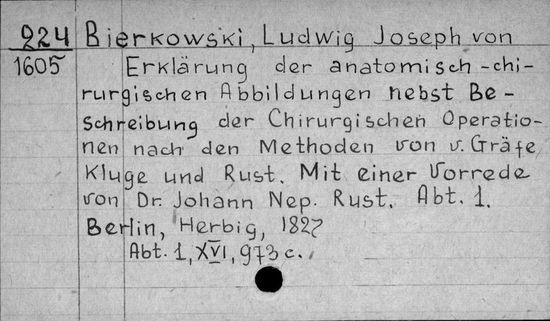 924 Bierkowski, Ludwig Joseph von
1605 Erklärung der anatomisch-chi-
rurgischen Abbildungen nebst Be-
schreibung der Chirurgischen Operatio-
nen nach den Methoden von v. Gräfe,
Kluge und Rust. Mit einer Vorrede
von Dr. Johann Nep. Rust. Abt. 1.
Berlin, Herbig, 1827
Abt. 1, XVI, 973 c.